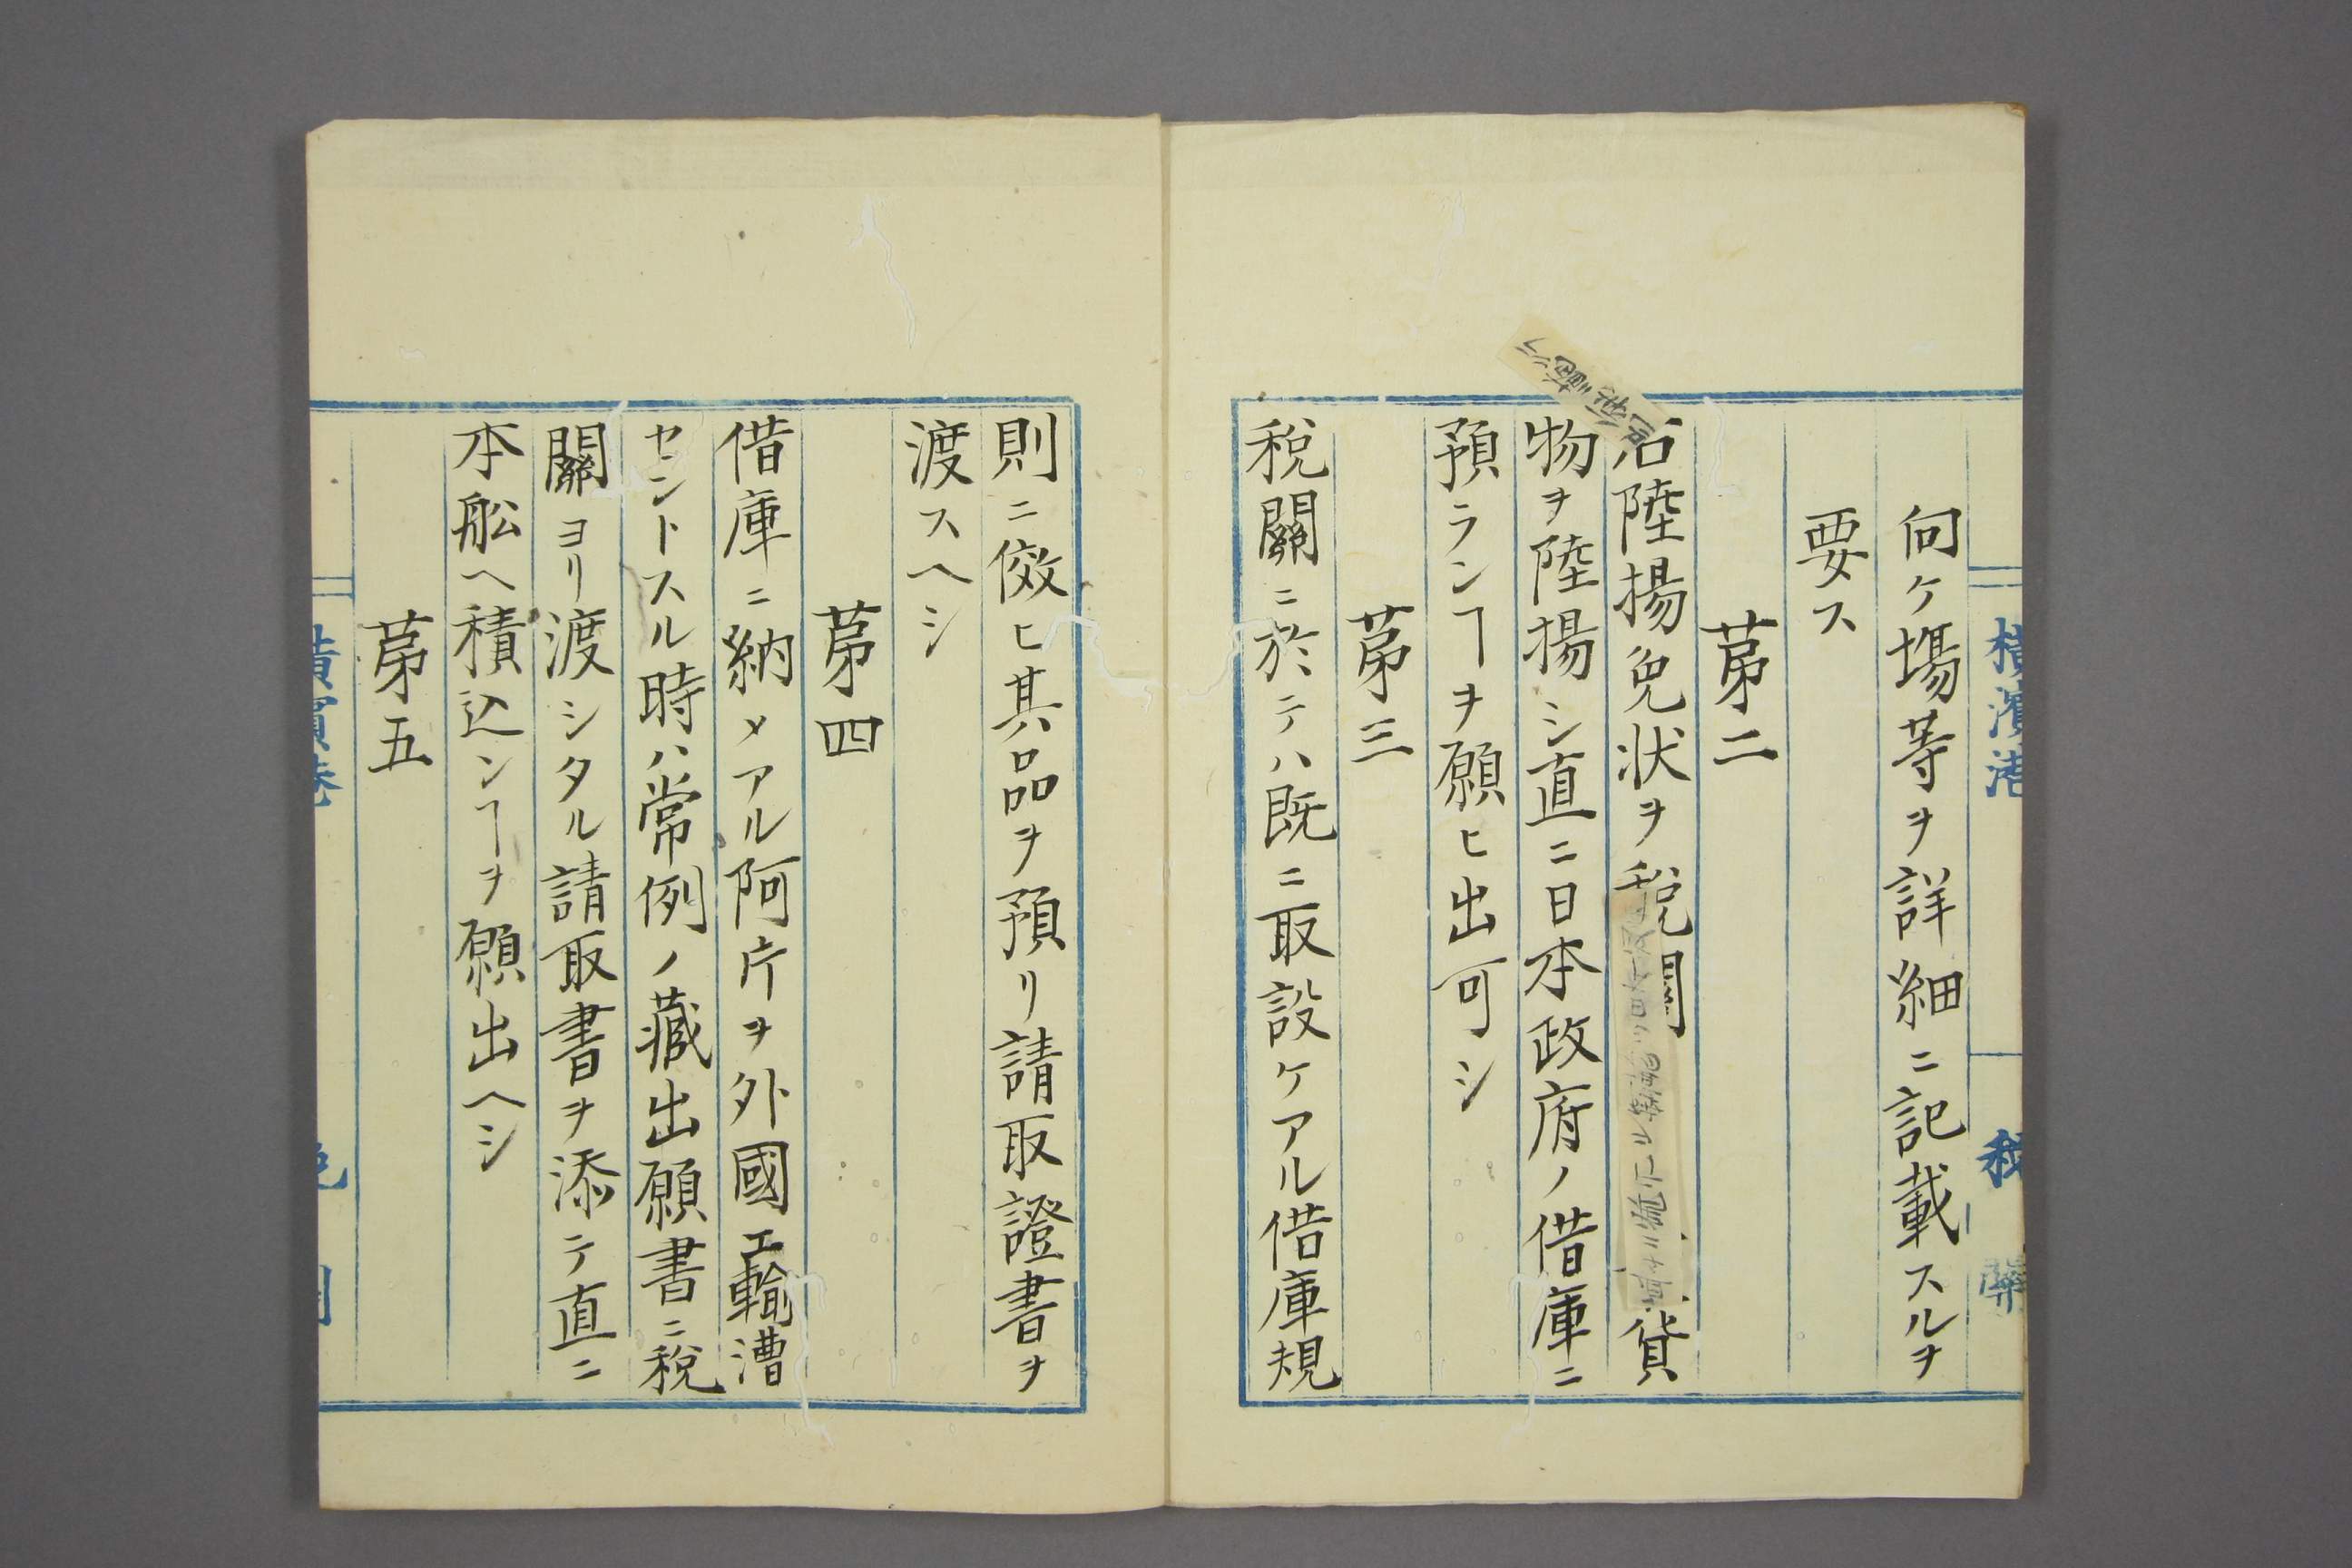 横濱港 税 關
向ケ塲等ヲ詳細ニ記載スルヲ
要ス
苐二
右陸揚免状ヲ税關 貨
物ヲ陸揚シ直ニ日本政府ノ借庫ニ
預ランヿヲ願ヒ出可シ
苐三
税關ニ於テハ既ニ取設ケアル借庫規
則ニ傚ヒ其品ヲ預リ請取證書ヲ
渡スヘシ
苐四
借庫ニ納メアル阿片ヲ外國エ輸漕
セントスル時ハ常例ノ藏出願書ニ税
關ヨリ渡シタル請取書ヲ添テ直ニ
本舩ヘ積込ンヿヲ願出ヘシ
苐五